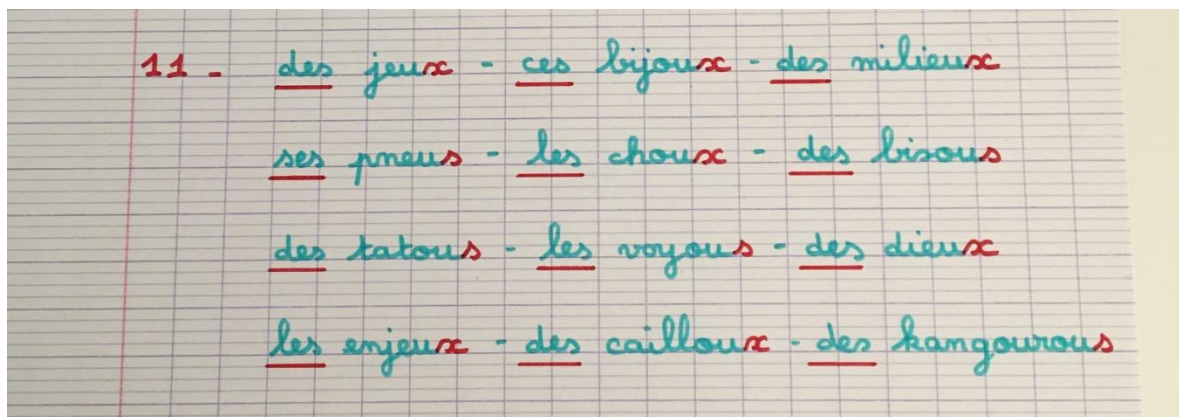 11 - des jeux - ces bijoux - des milieux
ses pneus - les choux - des bisous
des tatous - les voyous - des dieux
les enjeux - des cailloux - des kangourous